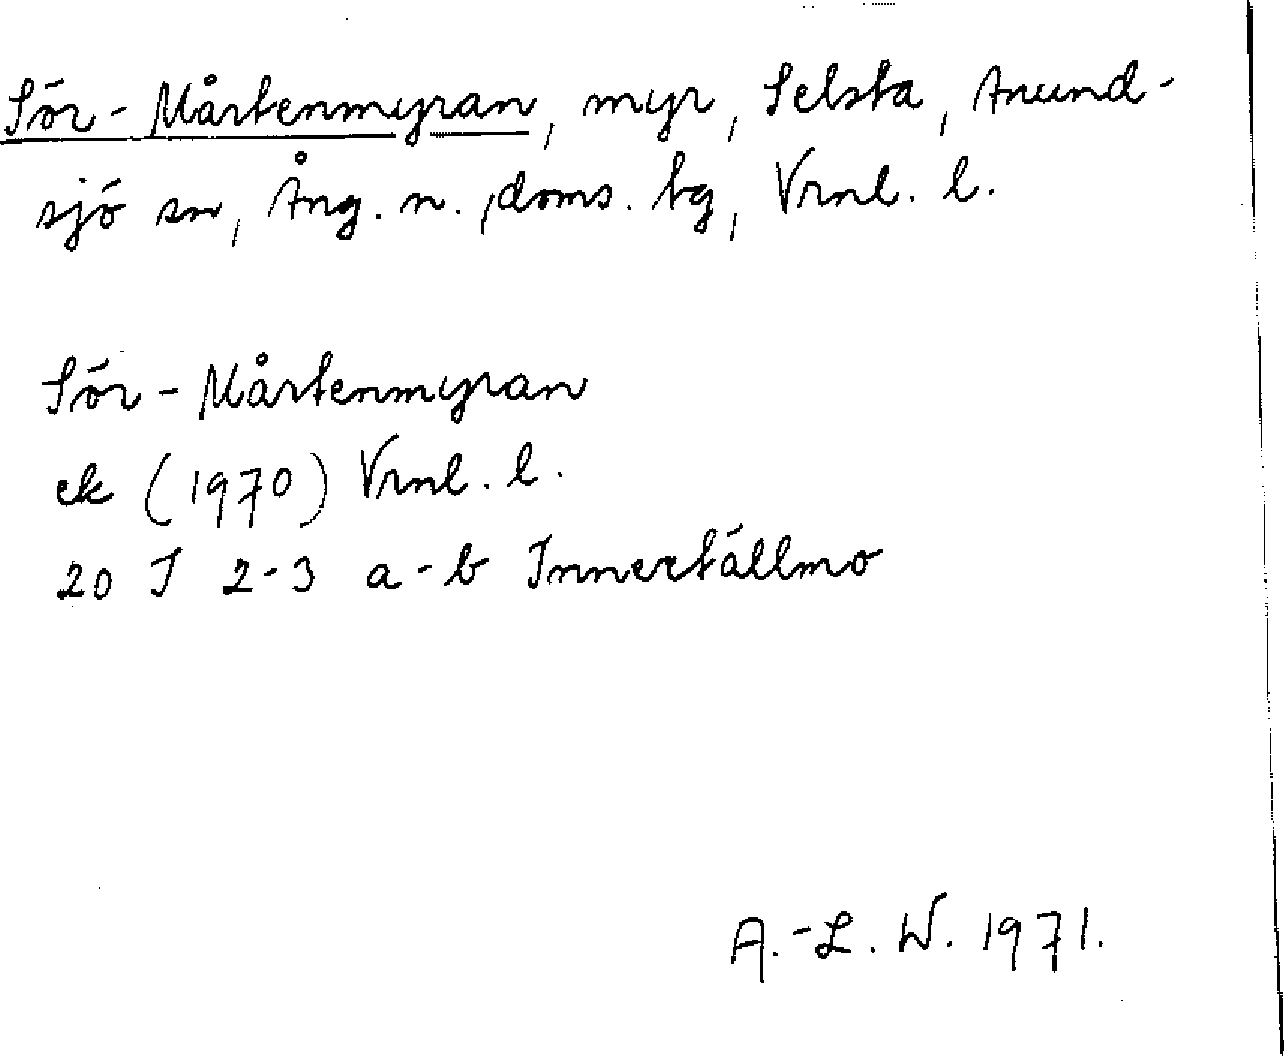 Sör-Mårtenmyran, myr, Selsta, Anund-
sjö sn, Ång. n. doms. tg, Vrnl. l.
Sör-Mårtenmyran
ek (1970) Vrnl. l.
20 I 2-3 a-b Innertällmo
A.-L. W. 1971.